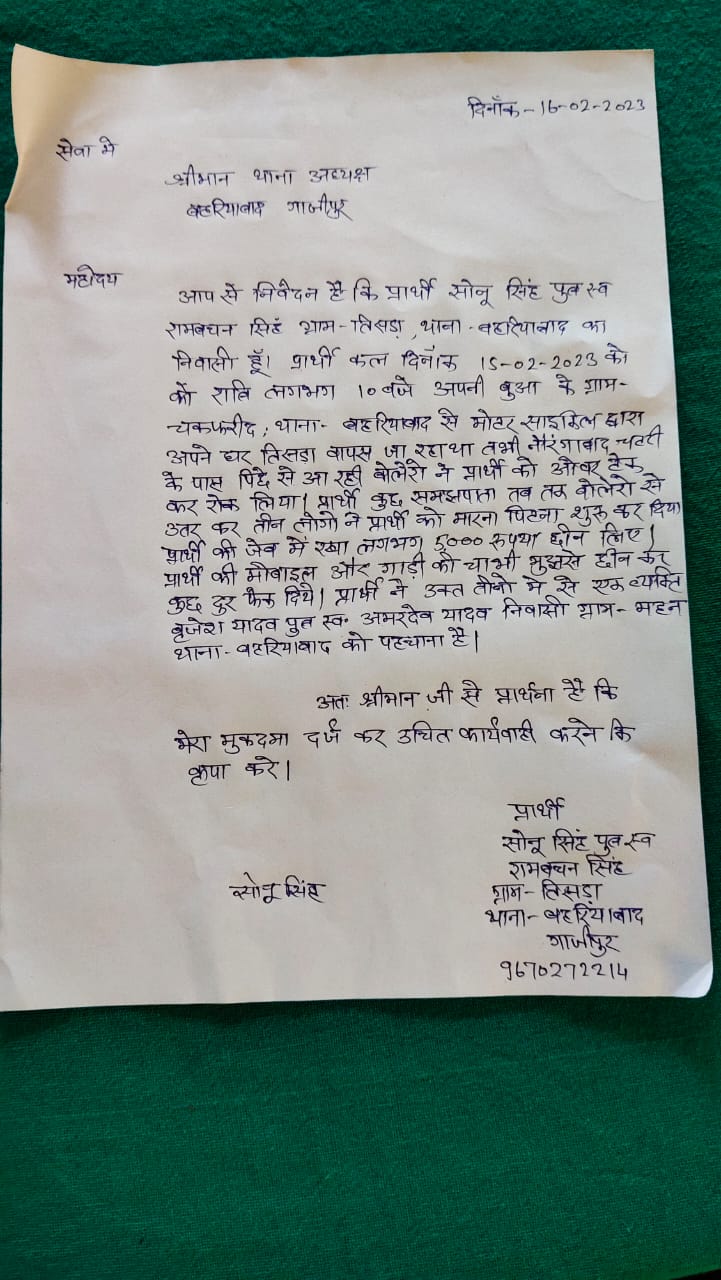 दिनाँक-16-02-2023
सेवा मे
श्रीमान थाना अध्यक्ष
बहरियाबाद गाजीपुर
महोदय
आप से निवेदन है कि प्रार्थी सोनू सिंह पुत्र स्व
रामबचन सिहं ग्राम-तिसड़ा, थाना-बहरियाबाद का
निवासी हूँ। प्रार्थी कल दिनाँक 15-02-2023 को
को रात्रि लगभग 10 बजे अपनी बुआ के ग्राम-
चकफरीद, थाना- बहरियाबाद से मोटर साइकिल द्वारा
अपने घर तिसड़ा वापस जा रहा था तभी नौरंगाबाद चट्टी
के पास पिछे से आ रही बोलेरो ने प्रार्थी को ओवर टेक
कर रोक लिया। प्रार्थी कुछ समझपाता तब तक बोलेरो से
उतर कर तीन लोगो ने प्रार्थी को मारना पिटना शुरू कर दिया
प्रार्थी की जेब में रखा लगभग 5000 रूपया छीन लिए।
प्रार्थी की मोबाइल और गाड़ी की चाभी मुझसे छीन कर
कुछ दुर फेक दिये। प्रार्थी ने उक्त तीनो मे से एक व्यक्ति
बृजेश यादव पुत्र स्व॰ अमरदेव यादव निवासी ग्राम- मदन
थाना-बहरियाबाद को पहचाना है।
अतः श्रीमान जी से प्रार्थना है कि
मेरा मुकदमा दर्ज कर उचित कार्यवाही करने कि
कृपा करे।
प्रार्थी
सोनू सिंह पुत्र स्व
रामबचन सिंह
सोनू सिंह
ग्राम- तिसड़ा
थाना- बहरियाबाद
गाजीपुर
9670272214